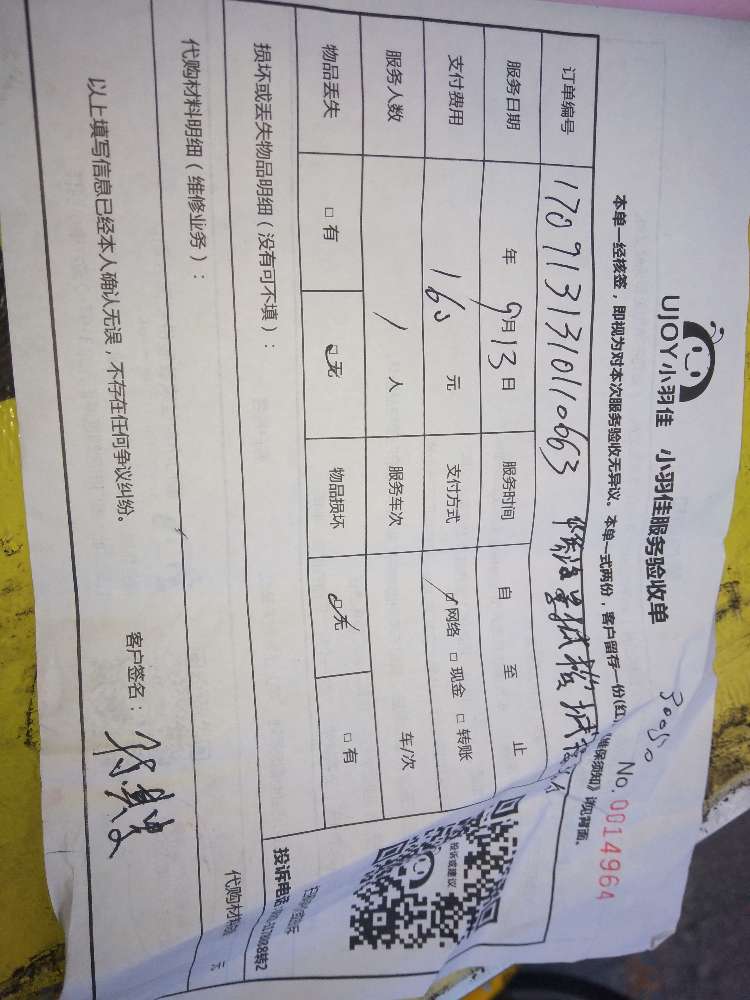 UJOY小羽佳 小羽佳服务验收单
No. 0014964
本单一经核签，即视为对本次服务验收无异议。本单一式两份，客户留存一份(红) 《维保须知》详见背面。
订单编号 1709131310110663
服务日期 年 9月 13日 服务时间 自 至 止
支付费用 160 元 支付方式 ☑网络 □现金 □转账
服务人数 1 人 服务车次 车/次
物品丢失 □有 ☑无 物品损坏 ☑无 □有
损坏或丢失物品明细（没有可不填）：
投诉或建议
投诉电话
代购材料明细（维修业务）：
代购材料 元
以上填写信息已经本人确认无误，不存在任何争议纠纷。
客户签名：